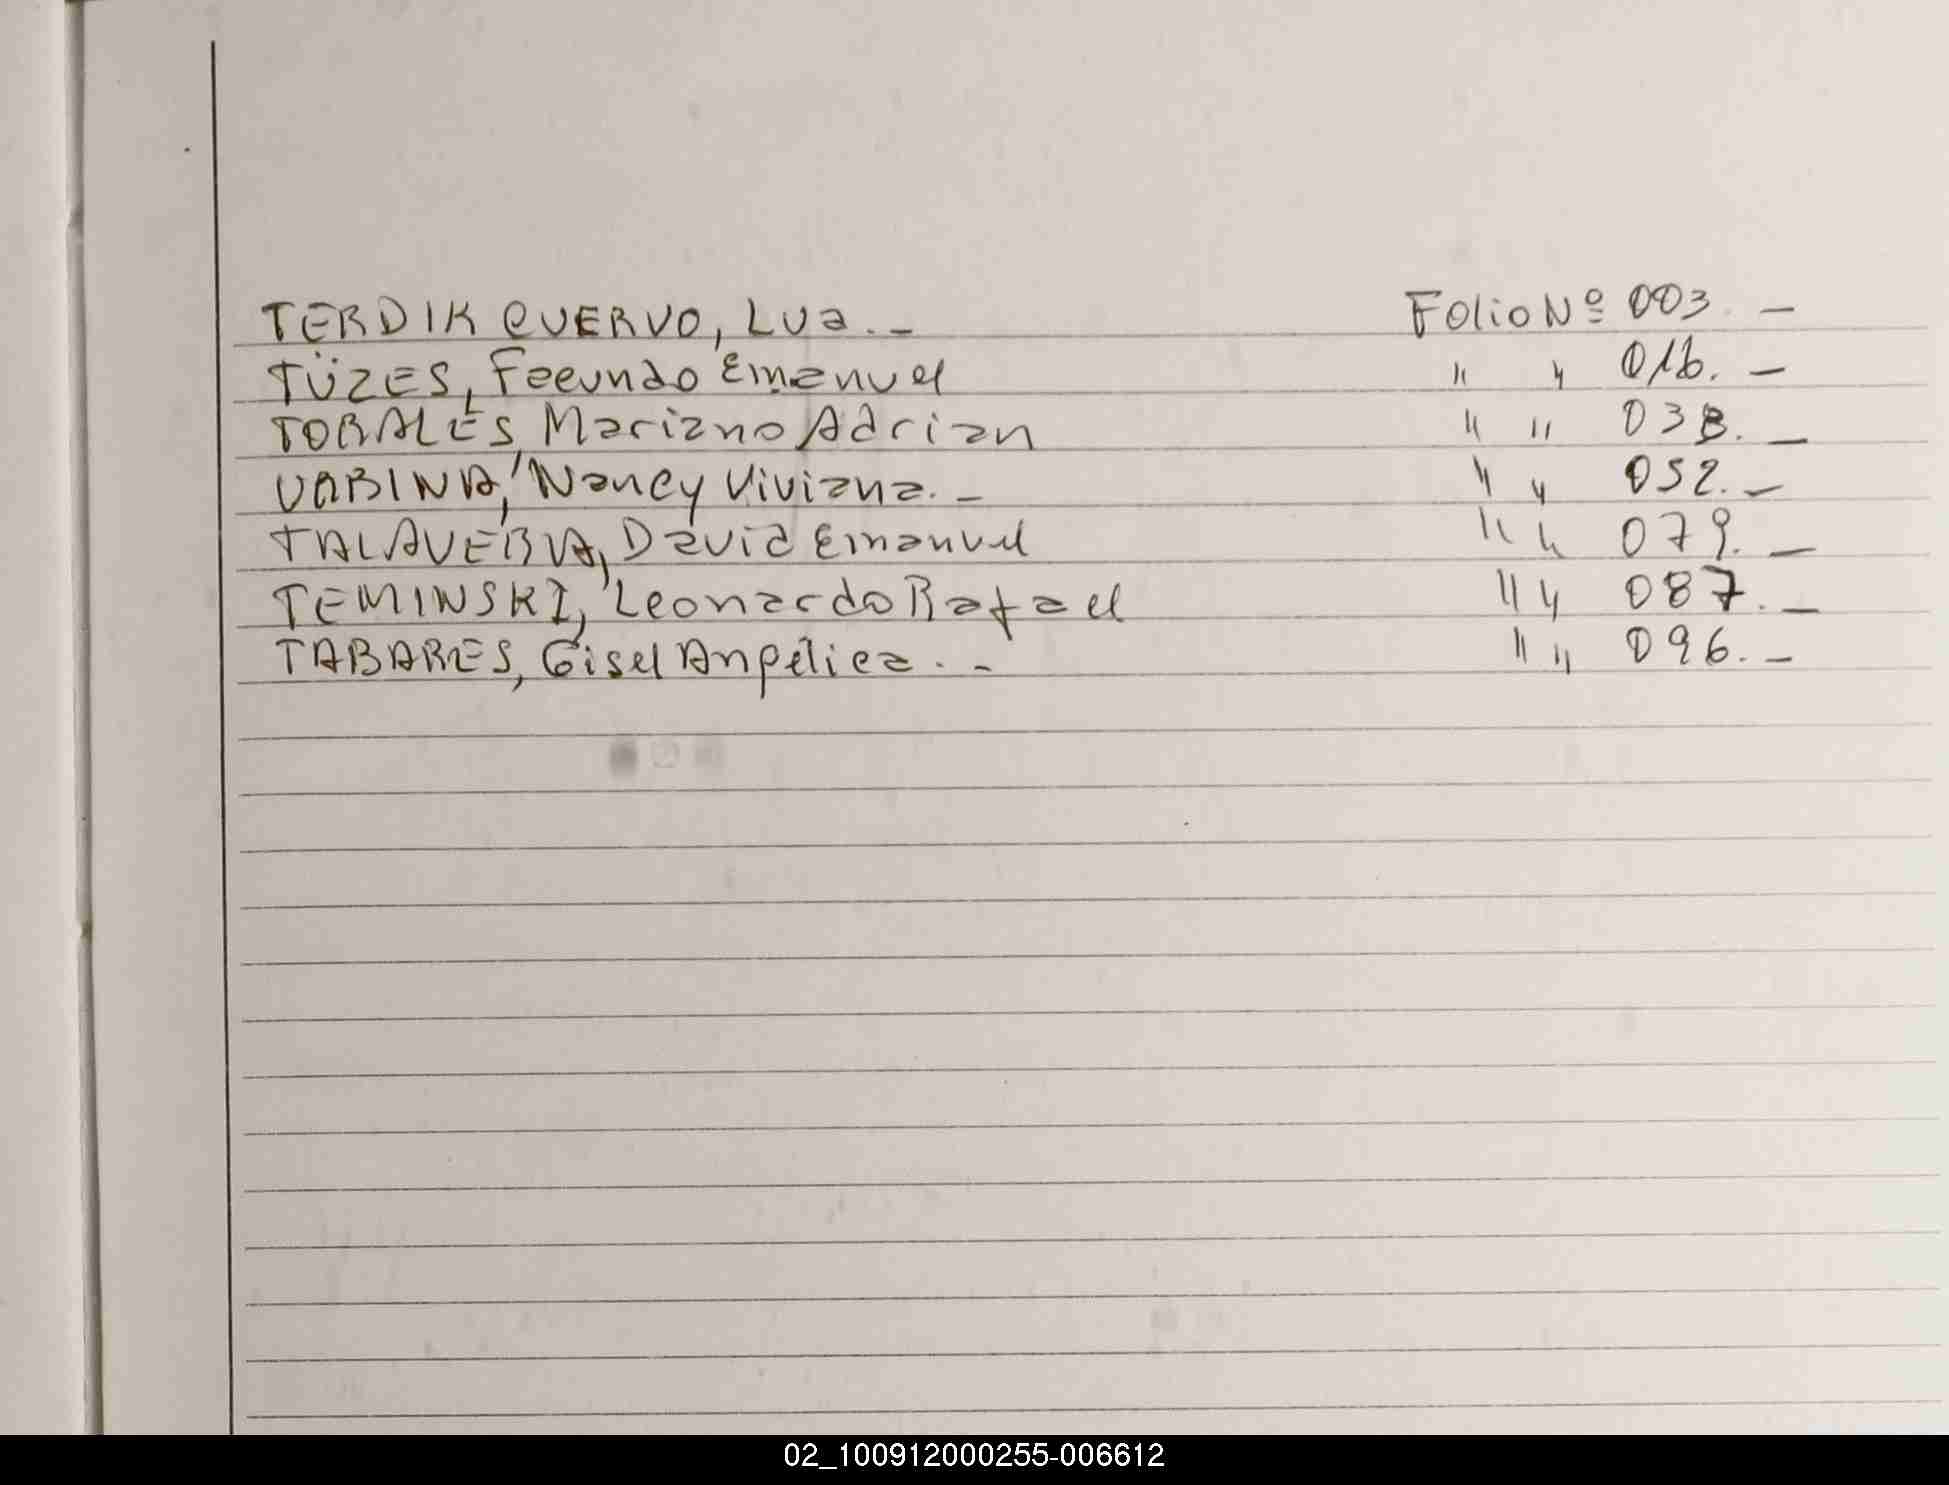 TERDIK CUERVO, Lua. - Folio Nº 003. -
TÜZES, Facundo Emanuel " " 016. -
TORALES, Mariano Adrian " " 038. -
UABINA, Nancy Viviana. - " " 052. -
TALAVERA, David Emanuel " " 079. -
TEMINSKI, Leonardo Rafael " " 087. -
TABARES, Gisel Angélica. - " " 096. -
02_100912000255-006612